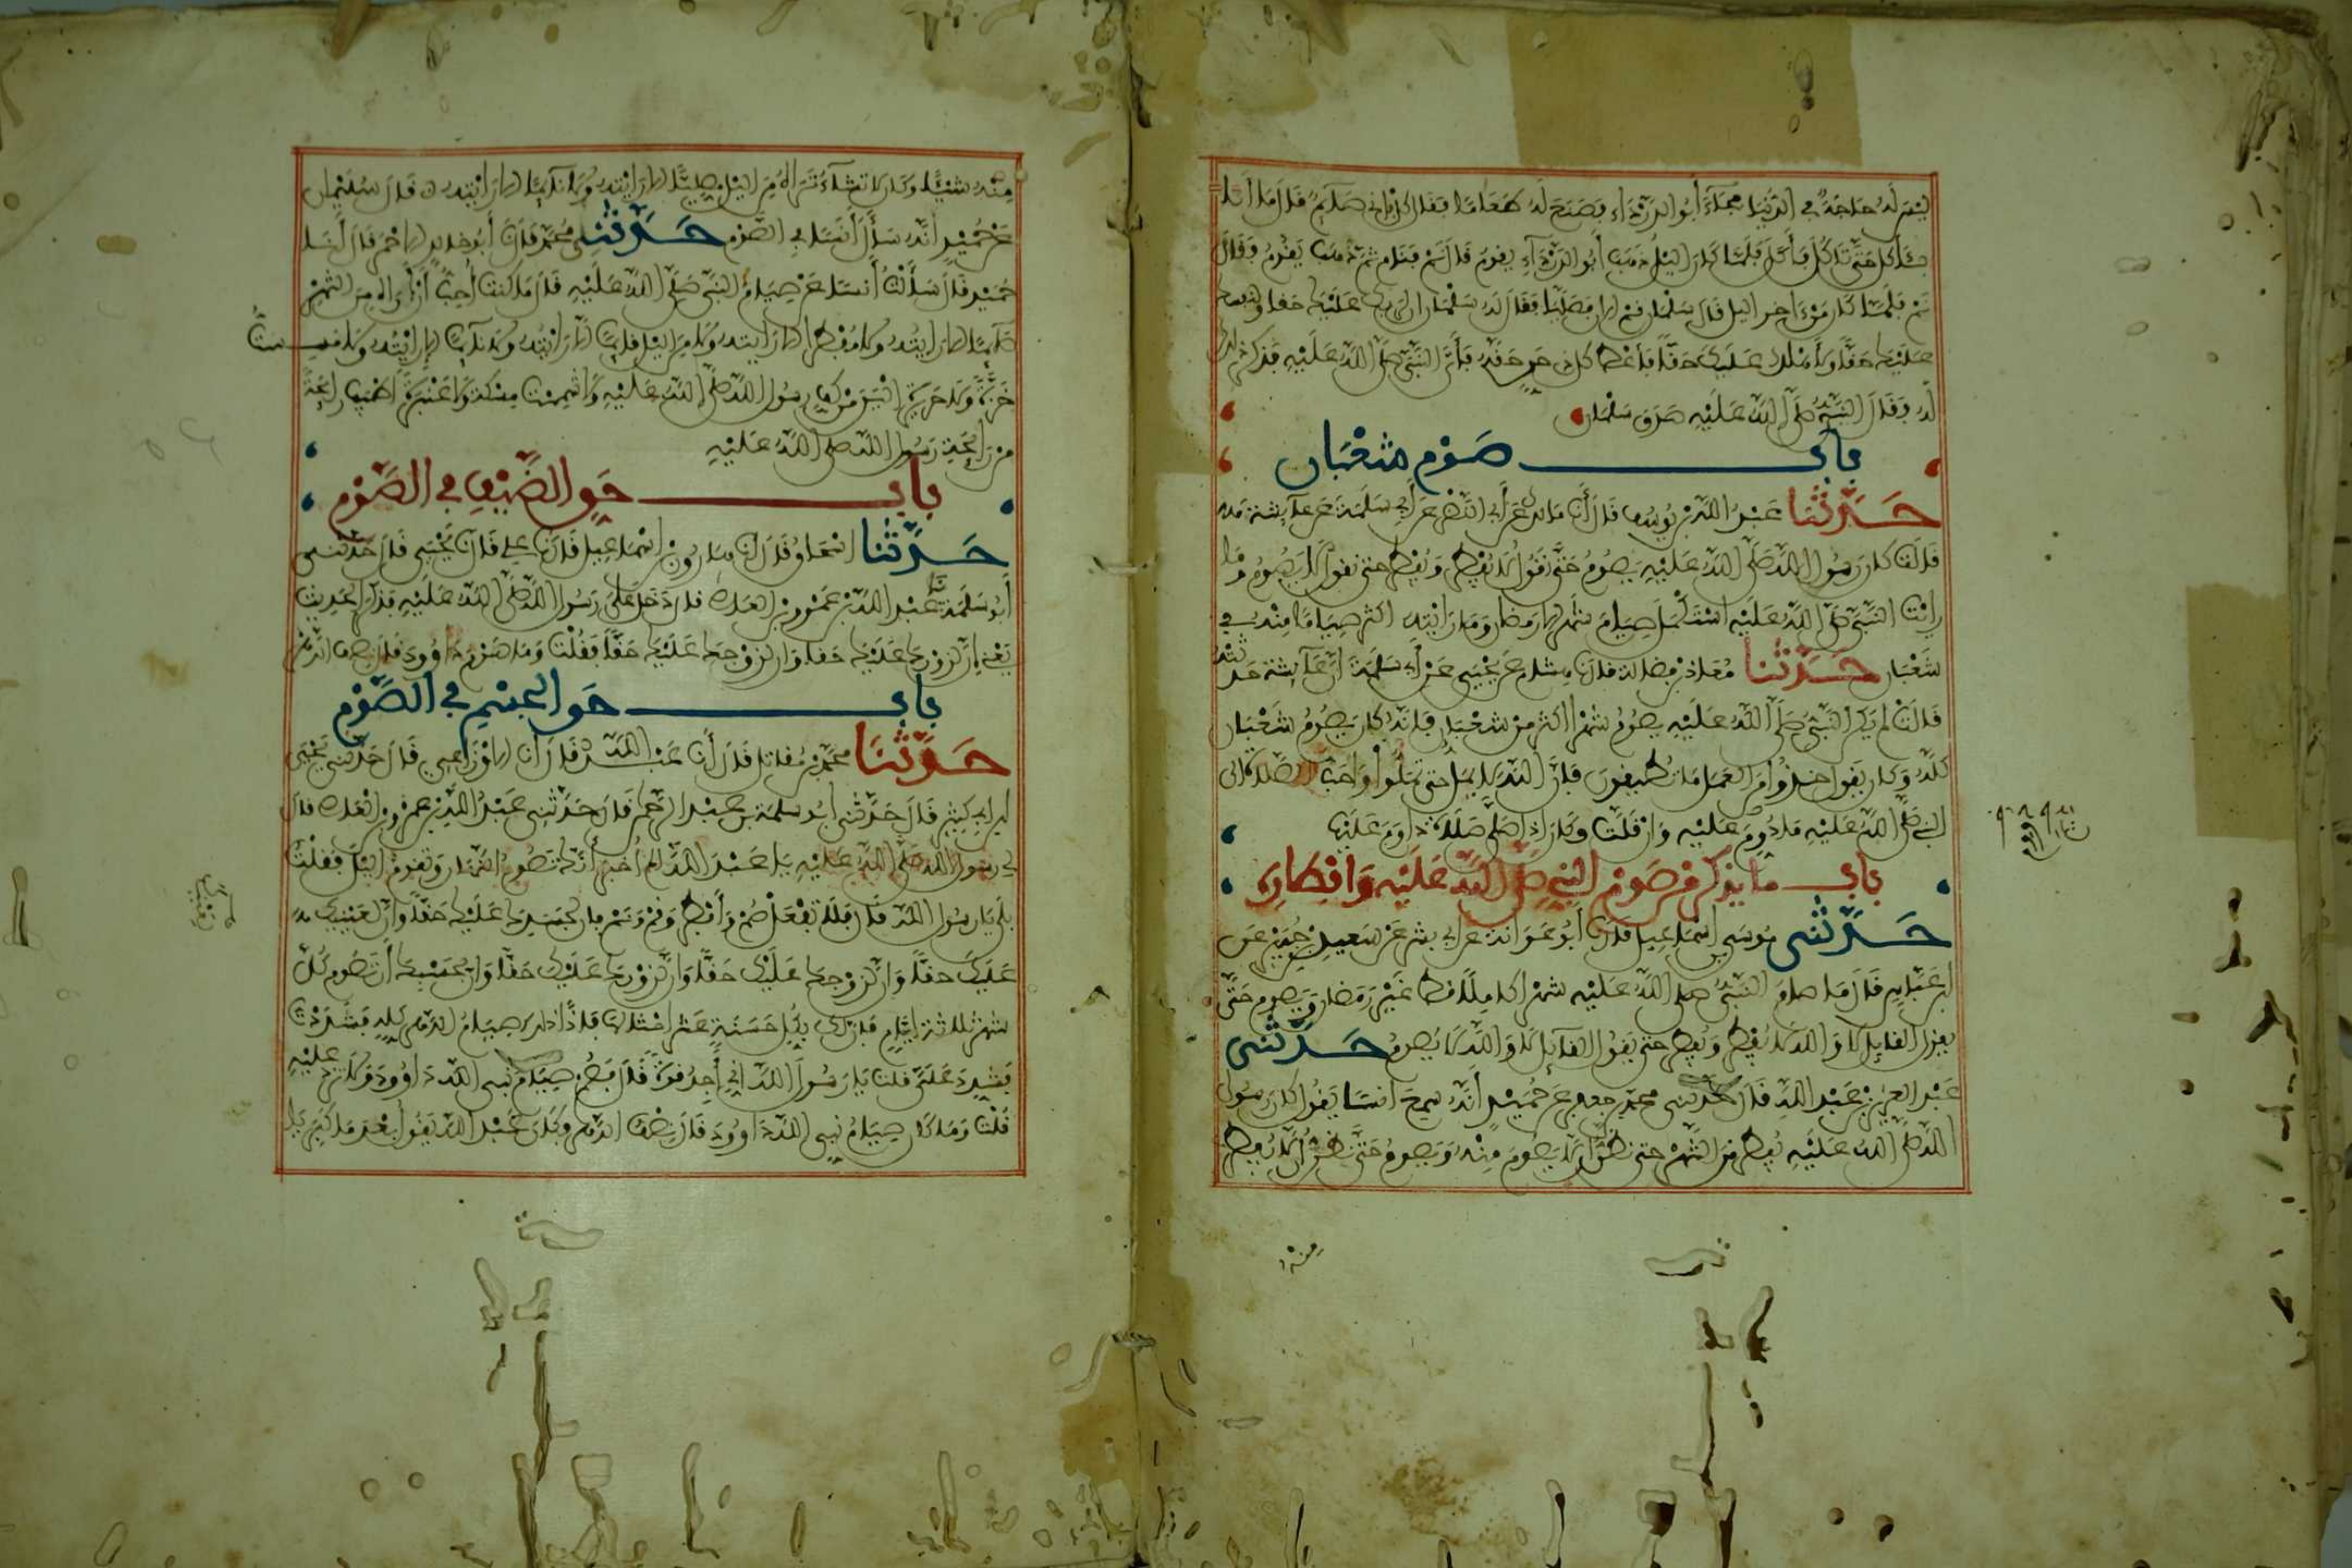 ليس له حاجة في الدنيا فجاء أبو الدرداء فصنع له طعاما فقال كل فإني صائم قال ما أنا
بآكل حتى تأكل فأكل فلما كان الليل ذهب أبو الدرداء يقوم قال نم فنام ثم ذهب يقوم فقال
نم فلما كان من آخر الليل قال سلمان قم الان فصليا فقال له سلمان إن لربك عليك حقا ولنفسك
عليك حقا ولأهلك عليك حقا فأعط كل ذي حق حقه فأتى النبي صلى الله عليه فذكر ذلك
له فقال النبي صلى الله عليه صدق سلمان
باب صوم شعبان
حدثنا عبد الله بن يوسف قال أنا مالك عن أبي النضر عن أبي سلمة عن عائشة
قالت كان رسول الله صلى الله عليه يصوم حتى نقول لا يفطر ويفطر حتى نقول لا يصوم وما
رأيت النبي صلى الله عليه استكمل صيام شهر إلا رمضان وما رأيته أكثر صياما منه في
شعبان حدثنا معاذ بن فضالة قال نا هشام عن يحيى عن أبي سلمة أن عائشة حدثته
قالت لم يكن النبي صلى الله عليه يصوم شهرا أكثر من شعبان فإنه كان يصوم شعبان
كله وكان يقول خذوا من العمل ما تطيقون فإن الله لا يمل حتى تملوا وأحب الصلاة إلى
النبي صلى الله عليه ما دووم عليه وإن قلت وكان إذا صلى صلاة داوم عليها
باب ما يذكر من صوم النبي صلى الله عليه وإفطاره
حدثني موسى بن إسماعيل قال نا أبو عوانة عن أبي بشر عن سعيد بن جبير عن
ابن عباس قال ما صام النبي صلى الله عليه شهرا كاملا قط غير رمضان ويصوم حتى
يقول القائل لا والله لا يفطر ويفطر حتى يقول القائل لا والله لا يصوم حدثني
عبد العزيز بن عبد الله قال حدثني محمد بن جعفر عن حميد أنه سمع أنسا يقول كان رسول
الله صلى الله عليه يفطر من الشهر حتى نظن أن لا يصوم منه ويصوم حتى نظن أن لا يفطر
منه
منه شيئا وكان لا تشاء تراه من الليل مصليا إلا رأيته ولا نائما إلا رأيته قال سليمان
عن حميد أنه سأل أنسا في الصوم حدثني محمد قال نا أبو خالد الاحمر قال أنا
حميد قال سألت أنسا عن صيام النبي صلى الله عليه قال ما كنت أحب أن أراه من الشهر
صائما إلا رأيته ولا مفطرا إلا رأيته ولا من الليل قائما إلا رأيته ولا نائما إلا رأيته ولا مسست
خزة ولا حريرة ألين من كف رسول الله صلى الله عليه ولا شممت مسكة ولا عنبرة أطيب رائحة
من رائحة رسول الله صلى الله عليه
باب حق الضيف في الصوم
حدثنا إسحاق قال نا هارون بن إسماعيل قال نا علي قال نا يحيى قال حدثني
أبو سلمة نا عبد الله بن عمرو بن العاص قال دخل علي رسول الله صلى الله عليه فذكر الحديث
يعني إن لزورك عليك حقا وإن لزوجك عليك حقا فقلت وما صوم داوود قال نصف الدهر
باب حق الجسم في الصوم
حدثنا محمد بن مقاتل قال أنا عبد الله قال أنا الاوزاعي قال حدثني يحيى
ابن أبي كثير قال حدثني أبو سلمة بن عبد الرحمن قال حدثني عبد الله بن عمرو بن العاص قال
لي رسول الله صلى الله عليه يا عبد الله ألم أخبر أنك تصوم النهار وتقوم الليل فقلت
بلى يا رسول الله قال فلا تفعل صم وأفطر وقم ونم فإن لجسدك عليك حقا وإن لعينيك
عليك حقا وإن لزوجك عليك حقا وإن لزورك عليك حقا وإن بحسبك أن تصوم كل
شهر ثلاثة أيام فإن لك بكل حسنة عشر أمثالها فإذا ذلك صيام الدهر كله فشددت
فشدد علي قلت يا رسول الله إني أجد قوة قال فصم صيام نبي الله داوود ولا تزد عليه
قلت وما كان صيام نبي الله داوود قال نصف الدهر وكان عبد الله يقول بعد ما كبر يا